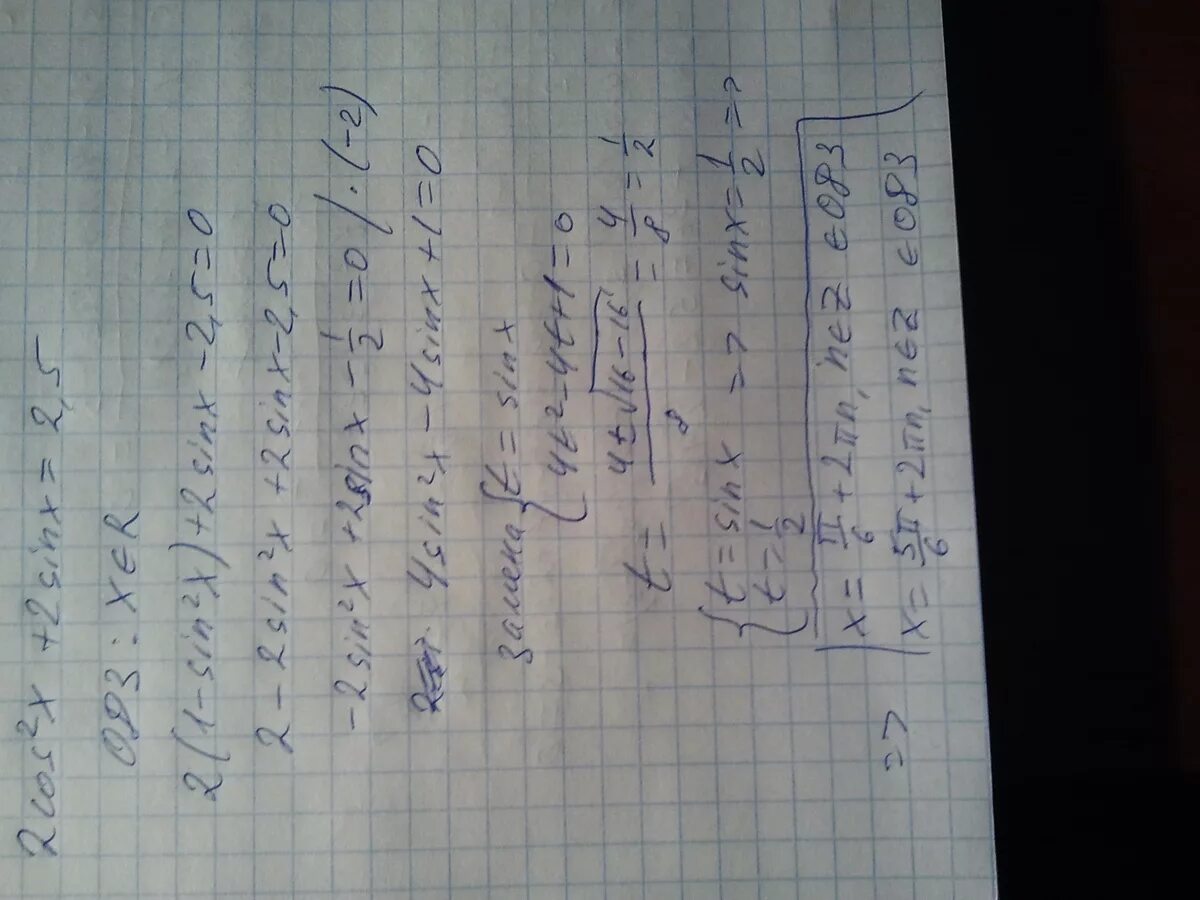 2cos²x + 2sinx = 2,5
ОДЗ: x∈R
2(1-sin²x) + 2sinx - 2,5 = 0
2 - 2sin²x + 2sinx - 2,5 = 0
-2sin²x + 2sinx - 1/2 = 0 / · (-2)
4sin²x - 4sinx + 1 = 0
Замена { t = sinx
4t² - 4t + 1 = 0
t = (4 ± √16-16)/8 = 4/8 = 1/2
{ t = sinx => sinx = 1/2 =>
t = 1/2
x = π/6 + 2πn, n∈Z ∈ ОДЗ
=> x = 5π/6 + 2πn, n∈Z ∈ ОДЗ